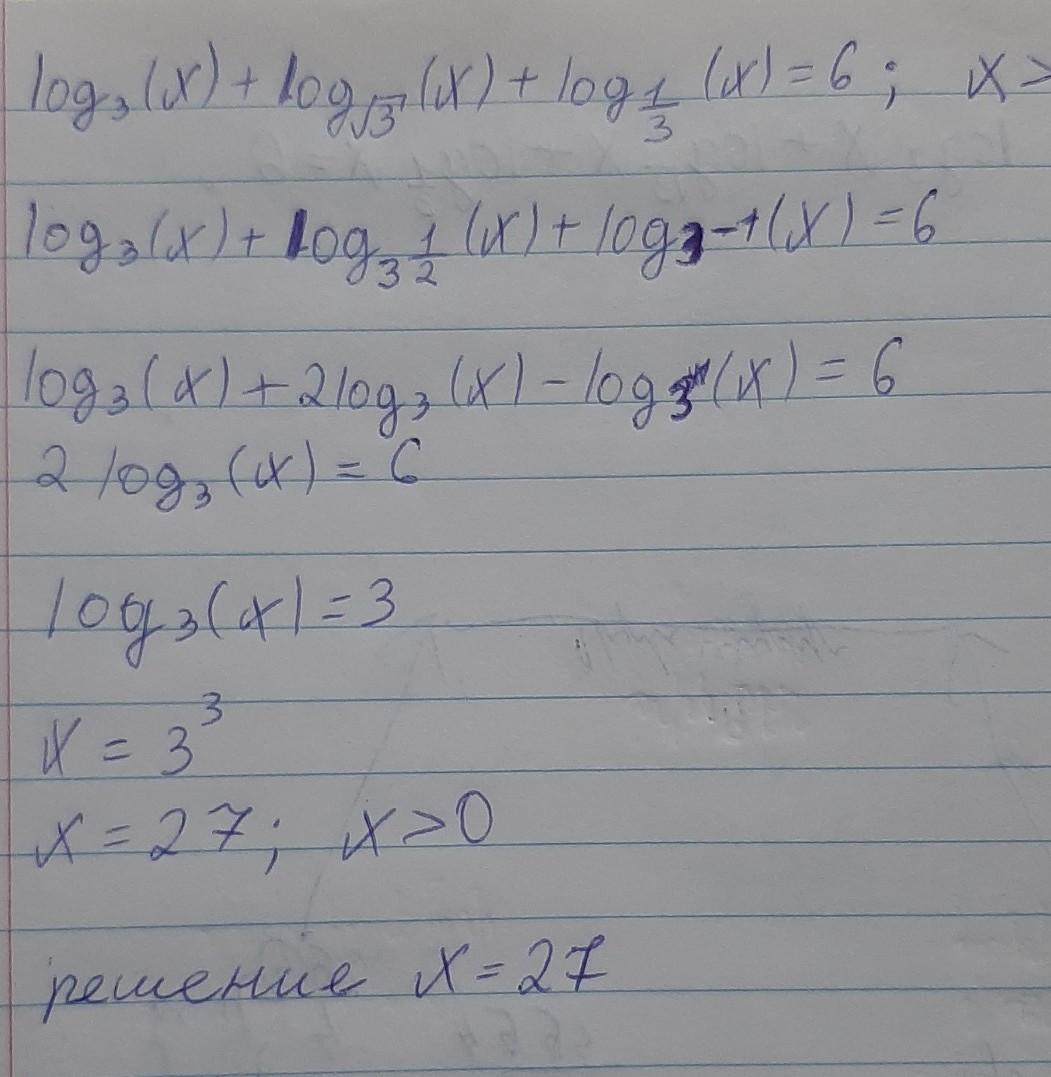 log₃(x) + log_√3(x) + log_1/3 (x) = 6 ; x >
log₃(x) + log_3 1/2 (x) + log₃-1(x) = 6
log₃(x) + 2log₃(x) - log₃(x) = 6
2 log₃(x) = 6
log₃(x) = 3
x = 3³
x = 27; x > 0
решение x = 27